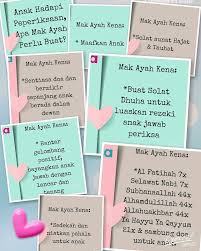 Anak Hadapi
Peperiksaan,
Apa Mak Ayah
Perlu Buat?
Mak Ayah Kena:
* Maafkan Anak
Mak Ayah Kena:
* Solat sunat Hajat
& Tauhat
Mak Ayah Kena:
* Sentiasa doa dan
berzikir
sepanjang anak
berada dalam
dewan
Mak Ayah Kena:
* Buat Solat
Dhuha untuk
luaskan rezeki
anak jawab
periksa
a
* Hantar
gelombang
positif,
bayangkan anak
jawab dengan
lancar dan
tenang
a
Mak Ayah Kena:
* Al Fatihah 7x
Selawat Nabi 7x
Subhanallah 44x
Alhamdulillah 44x
Allahuakhbar 44x
Ya Hayyu Ya Qayyum
21x & sambung doa
untuk anak
Mak Ayah Kena:
* Sedekah dan
niatkan pahala
untuk anak